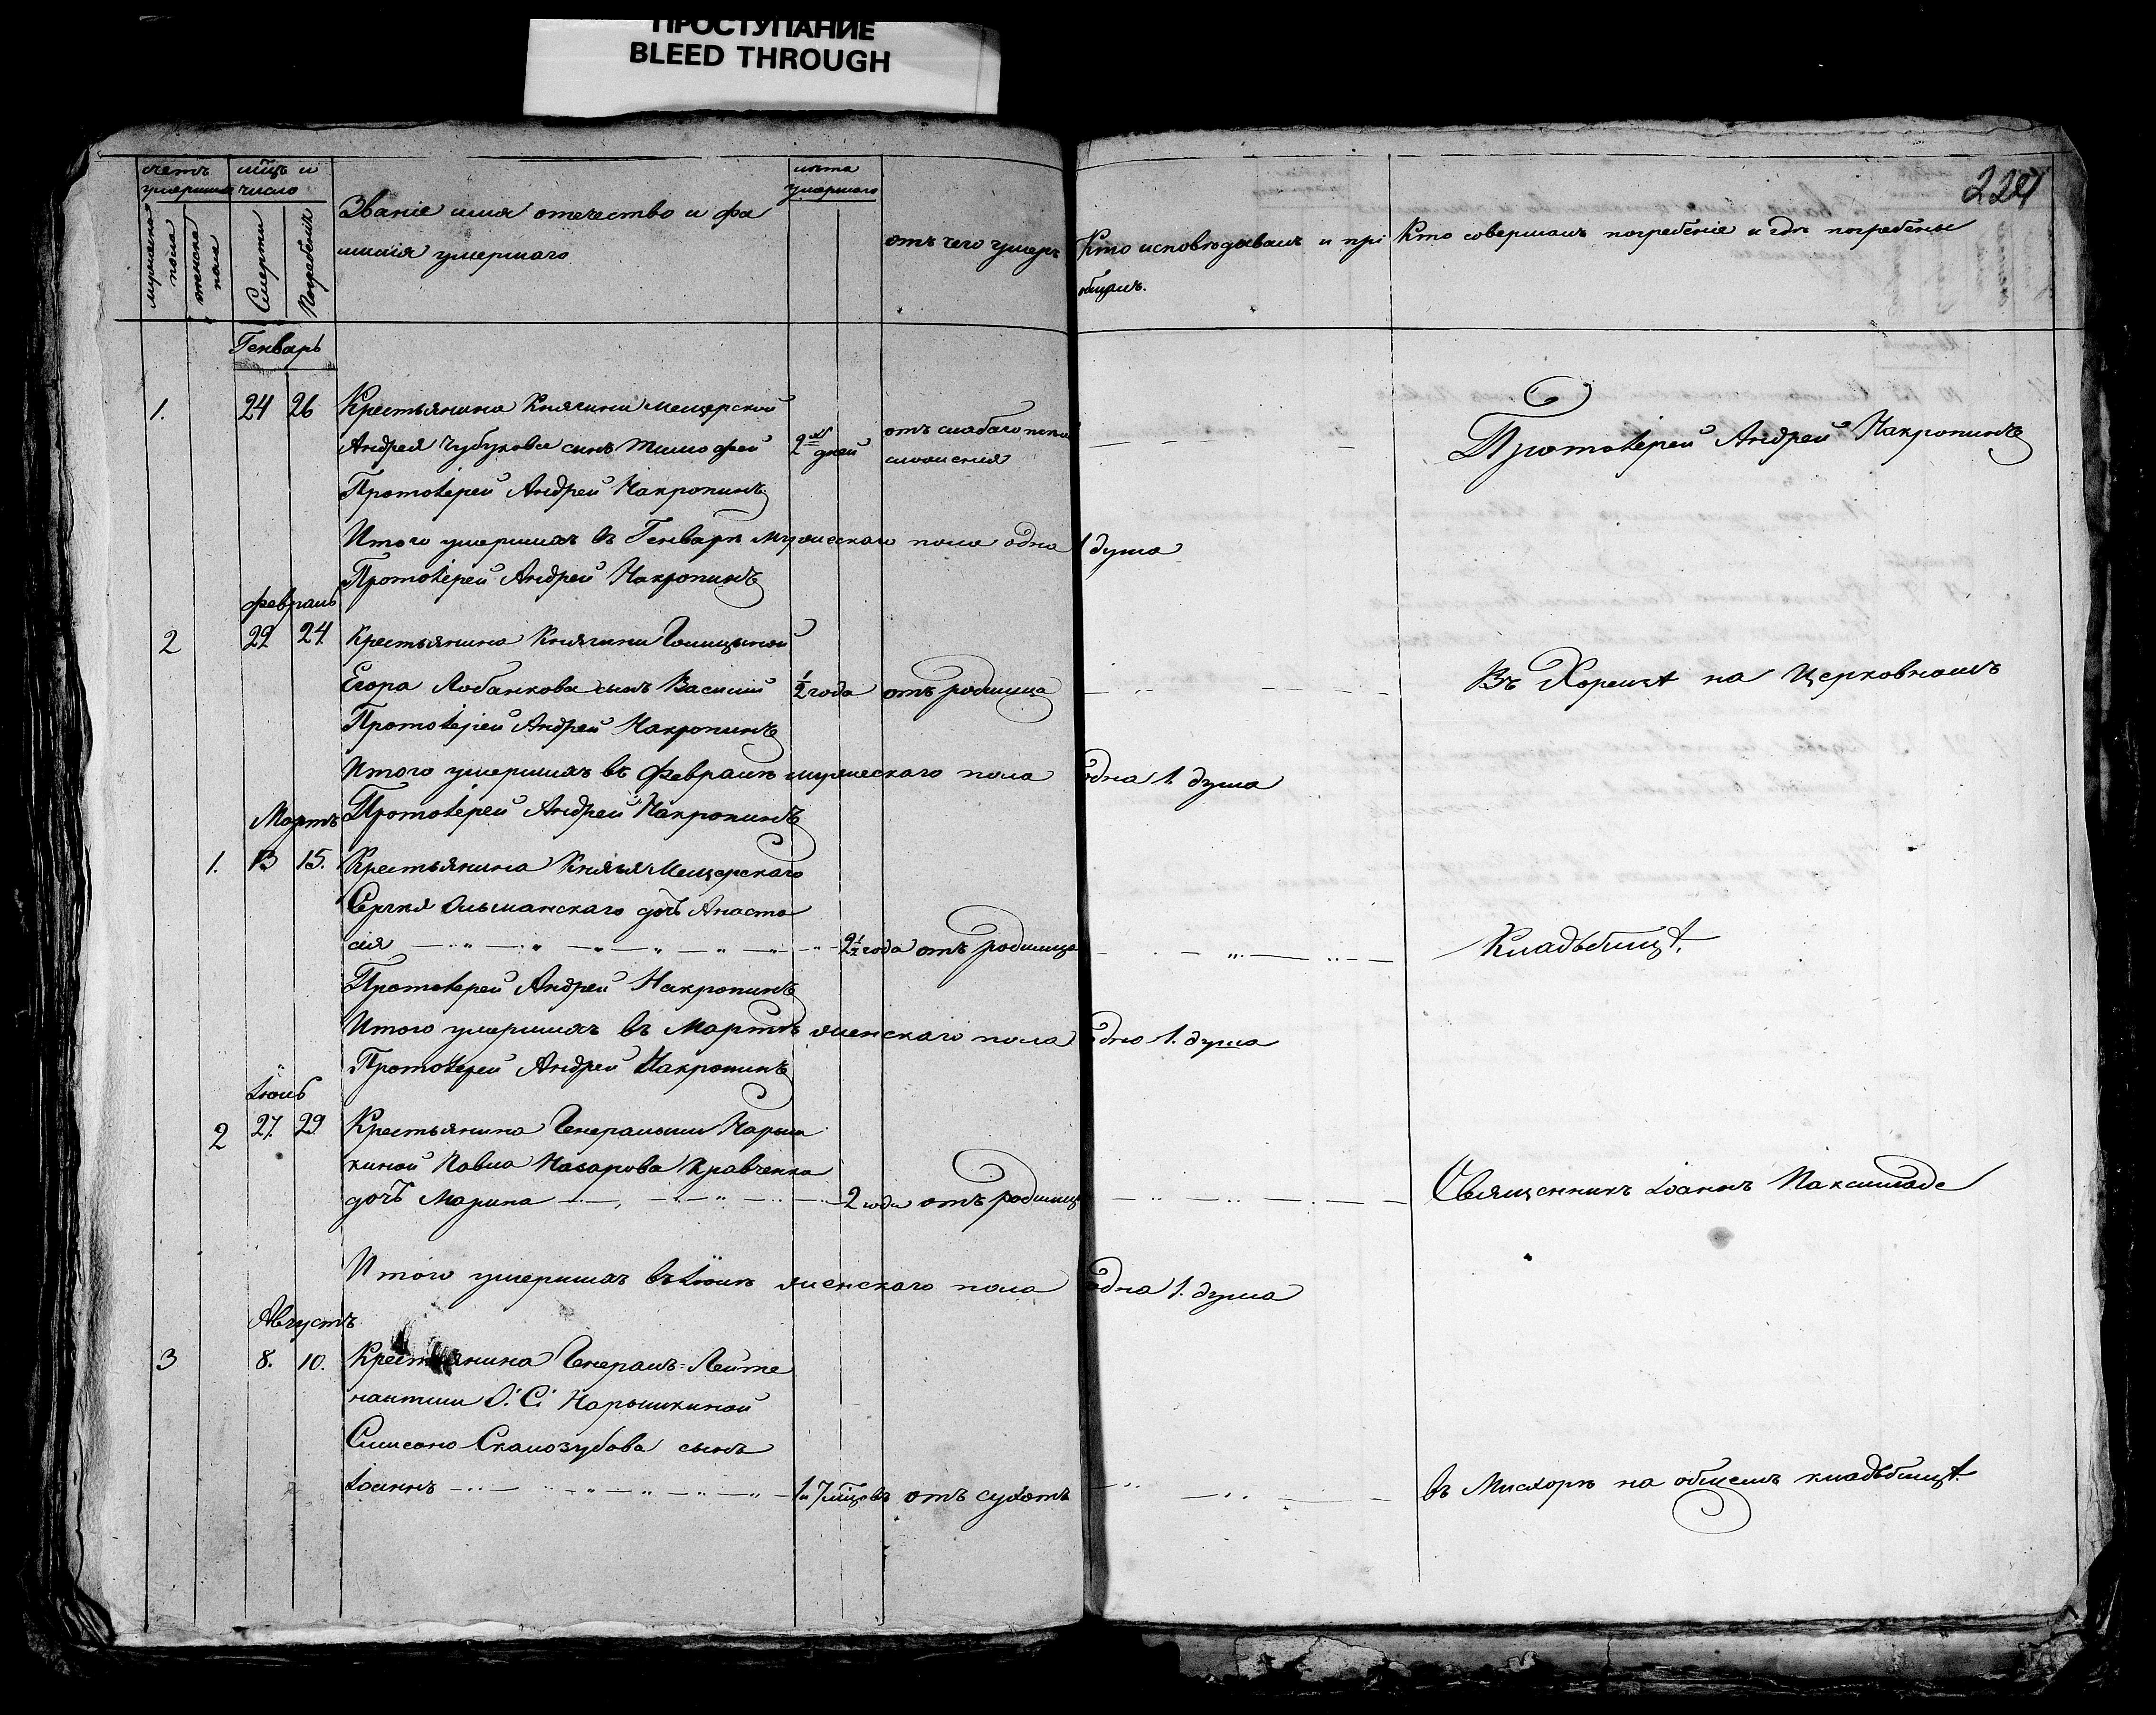 ПРОСТУПАНИЕ
BLEED THROUGH
224
счетъ
умершихъ
мужеска
пола
женска
пола
мѣцъ и
число
Смерти
Погребенія
Званіе имя отечество и фа
милія умершаго
лѣта
умершаго
отъ чего умеръ
Кто исповѣдывалъ и прі
общалъ.
Кто совершалъ погребеніе и гдѣ погребены
Генварь
1. 24 26 Крестьянина Княгини Мещерской
Андрея Чубукова сынъ Тимофей 2 дней отъ слабаго
сложенія
Протоіерей Андрей Накропинъ
Протоіерей Андрей Накропинъ
Итого умершихъ въ Генварѣ мужескаго пола одна 1 душа
Протоіерей Андрей Накропинъ
февраль
2 22 24 Крестьянина Княгини Голицыной
Егора Лобанкова сынъ Василій ½ года отъ родимца
Въ Кореизѣ на Церковномъ
Протоіерей Андрей Накропинъ
Итого умершихъ въ февралѣ мужескаго пола одна 1 душа
Мартъ Протоіерей Андрей Накропинъ
1. 13 15. Крестьянина Князя Мещерскаго
Сергѣя Ольшанскаго дочь Анаста
сія 2½ года отъ родимца
Кладьбищѣ.
Протоіерей Андрей Накропинъ
Итого умершихъ въ Мартѣ женскаго пола одна 1. душа
Протоіерей Андрей Накропинъ
2 27. 29 Крестьянина Генеральши Нарыш
киной Павла Назарова Кравченка
дочь Марина 2 года отъ родимца
Священникъ Іоаннъ
Итого умершихъ въ женскаго пола одна 1. душа
Августъ
3 8. 10. Крестьянина Генералъ-Лейте
нантши О. С. Нарышкиной
Симеона Скалозубова сынъ
Іоаннъ 1 и 7 мѣцовъ отъ сухотъ
въ Мисхорѣ на общемъ кладьбищѣ.